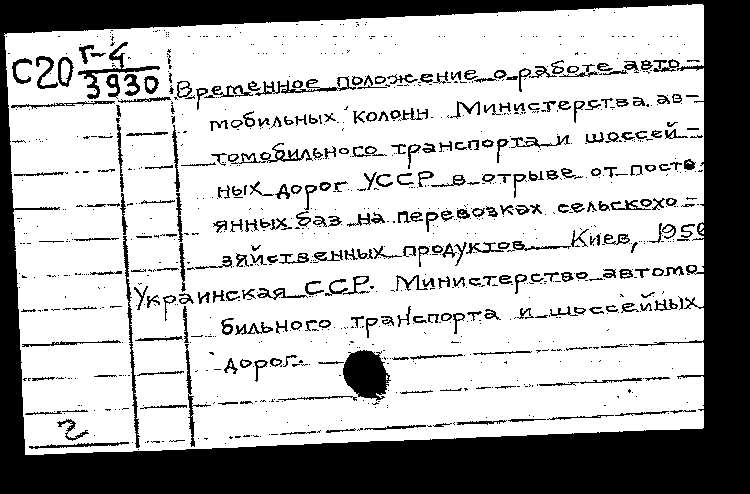 С20 Г-4
3930
Временное положение о работе авто-
мобильных колонн Министерства ав-
томобильного транспорта и шоссей-
ных дорог УССР в отрыве от постo
янных баз на перевозках сельскохо-
зяйственных продуктов. Киев, 1956
Украинская ССР. Министерство автомо
бильного транспорта и шоссейных
дорог.
г